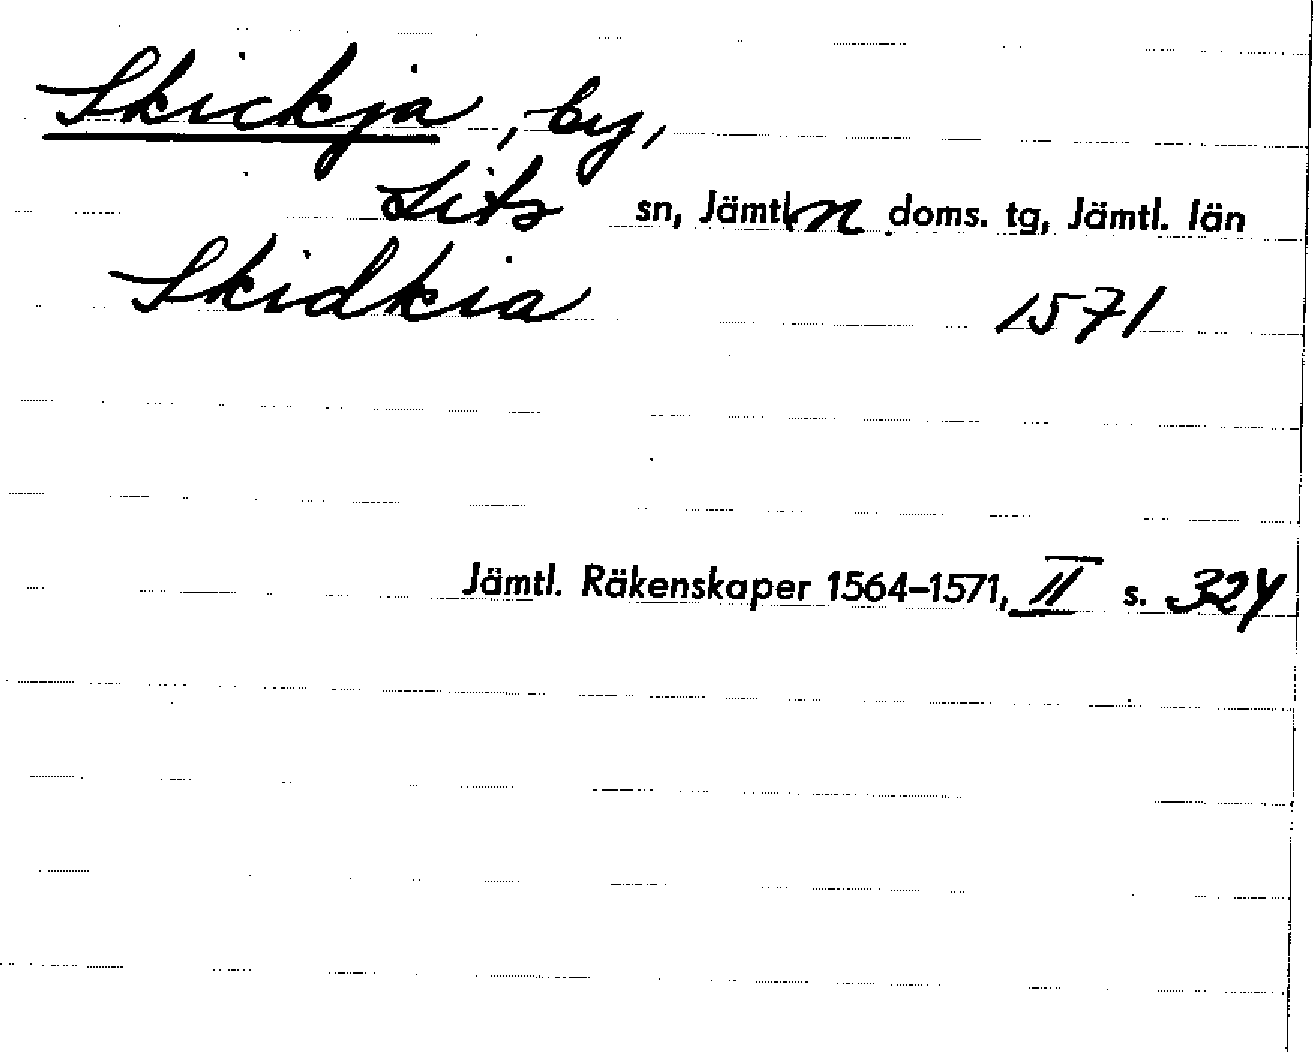 Skickja, by,
Lits sn, Jämtl. n doms. tg, Jämtl. län
Skidkia 1571
Jämtl. Räkenskaper 1564–1571, II s. 324